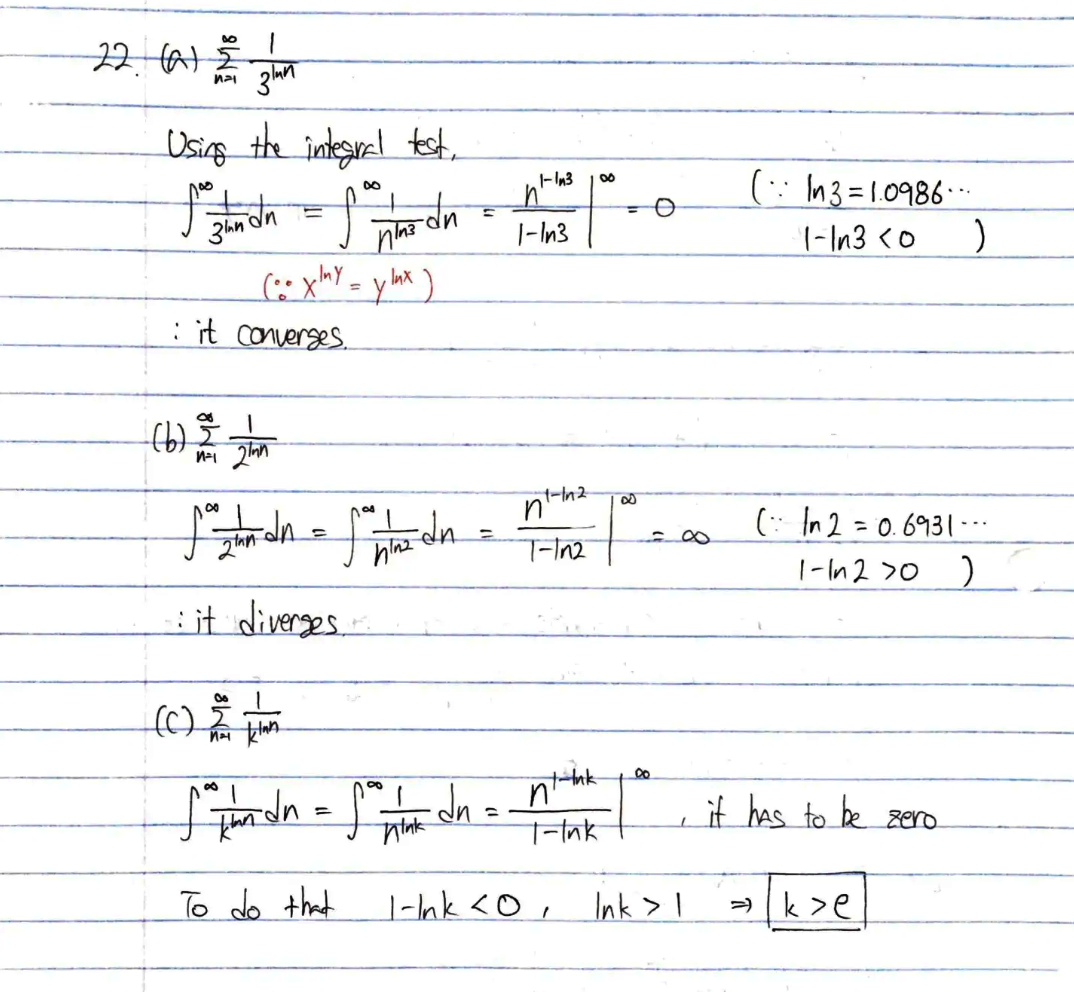 22. (a) $\sum_{n=1}^{\infty} \frac{1}{3^{\ln n}}$
Using the integral test,
$\int^{\infty} \frac{1}{3^{\ln n}} dn = \int^{\infty} \frac{1}{n^{\ln 3}} dn = \left. \frac{n^{1-\ln 3}}{1-\ln 3} \right|^{\infty} = 0$ (∵ ln3 = 1.0986⋯
1-ln3 < 0 )
(∵ $x^{\ln y} = y^{\ln x}$ )
: it converges.
(b) $\sum_{n=1}^{\infty} \frac{1}{2^{\ln n}}$
$\int^{\infty} \frac{1}{2^{\ln n}} dn = \int^{\infty} \frac{1}{n^{\ln 2}} dn = \left. \frac{n^{1-\ln 2}}{1-\ln 2} \right|^{\infty} = \infty$ (∵ ln 2 = 0.6931⋯
1-ln 2 > 0 )
: it diverges.
(C) $\sum_{n=1}^{\infty} \frac{1}{k^{\ln n}}$
$\int^{\infty} \frac{1}{k^{\ln n}} dn = \int^{\infty} \frac{1}{n^{\ln k}} dn = \left. \frac{n^{1-\ln k}}{1-\ln k} \right|^{\infty}$ , it has to be zero
To do that 1-lnk < 0 , lnk > 1 ⇒ k > e